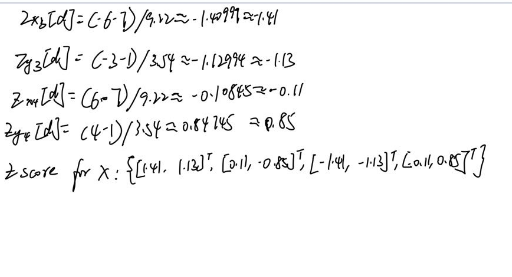 Zx3[d]=(-6-7)/9.22≈-1.40999≈-1.41
Zy3[d]=(-3-1)/3.54≈-1.12994≈-1.13
Zx4[d]=(6-7)/9.22≈-0.10845≈-0.11
Zy4[d]=(4-1)/3.54≈0.84745≈0.85
z score for X: {[1.41, 1.13]ᵀ, [0.11, -0.85]ᵀ, [-1.41, -1.13]ᵀ, [-0.11, 0.85]ᵀ}